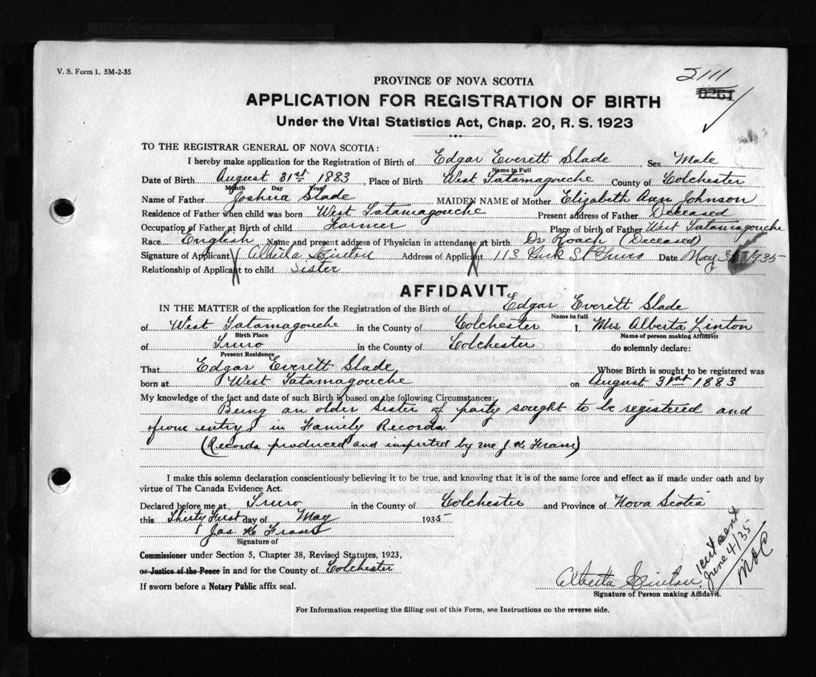 V. S. Form 1, 5M-2-35
PROVINCE OF NOVA SCOTIA
2111
0261
APPLICATION FOR REGISTRATION OF BIRTH
Under the Vital Statistics Act, Chap. 20, R. S. 1923
TO THE REGISTRAR GENERAL OF NOVA SCOTIA:
I hereby make application for the Registration of Birth of Edgar Everett Slade Sex Male
Name in Full
Date of Birth August 31st 1883, Place of Birth West Tatamagouche County of Colchester
Month Day Year
Name of Father Joshua Slade MAIDEN NAME of Mother Elizabeth Ann Johnson
Residence of Father when child was born West Tatamagouche Present address of Father Deceased
Occupation of Father at Birth of child Farmer Place of birth of Father West Tatamagouche
Race English Name and present address of Physician in attendance at birth Dr Roach (Deceased)
Signature of Applicant Alberta Linton Address of Applicant 113 St Truro Date May 31 1935
Relationship of Applicant to child Sister
AFFIDAVIT
IN THE MATTER of the application for the Registration of the Birth of Edgar Everett Slade
Name in Full
of West Tatamagouche in the County of Colchester I, Mrs Alberta Linton
Birth Place Name of person making Affidavit
of Truro in the County of Colchester do solemnly declare:
Present Residence
That Edgar Everett Slade Whose Birth is sought to be registered was
born at West Tatamagouche on August 31st 1883
My knowledge of the fact and date of such Birth is based on the following Circumstances:
Being an older sister of party sought to be registered and
from entry in Family Records
(Records produced and inspected by me J. K. Fraser)
I make this solemn declaration conscientiously believing it to be true, and knowing that it is of the same force and effect as if made under oath and by
virtue of The Canada Evidence Act.
Declared before me at Truro in the County of Colchester and Province of Nova Scotia
this Thirty First day of May 1935
Jas K Fraser
Signature of
Commissioner under Section 5, Chapter 38, Revised Statutes, 1923,
or Justice of the Peace in and for the County of Colchester
If sworn before a Notary Public affix seal.
Alberta Linton
Signature of Person making Affidavit.
cert sent
June 4/35
For Information respecting the filling out of this Form, see Instructions on the reverse side.